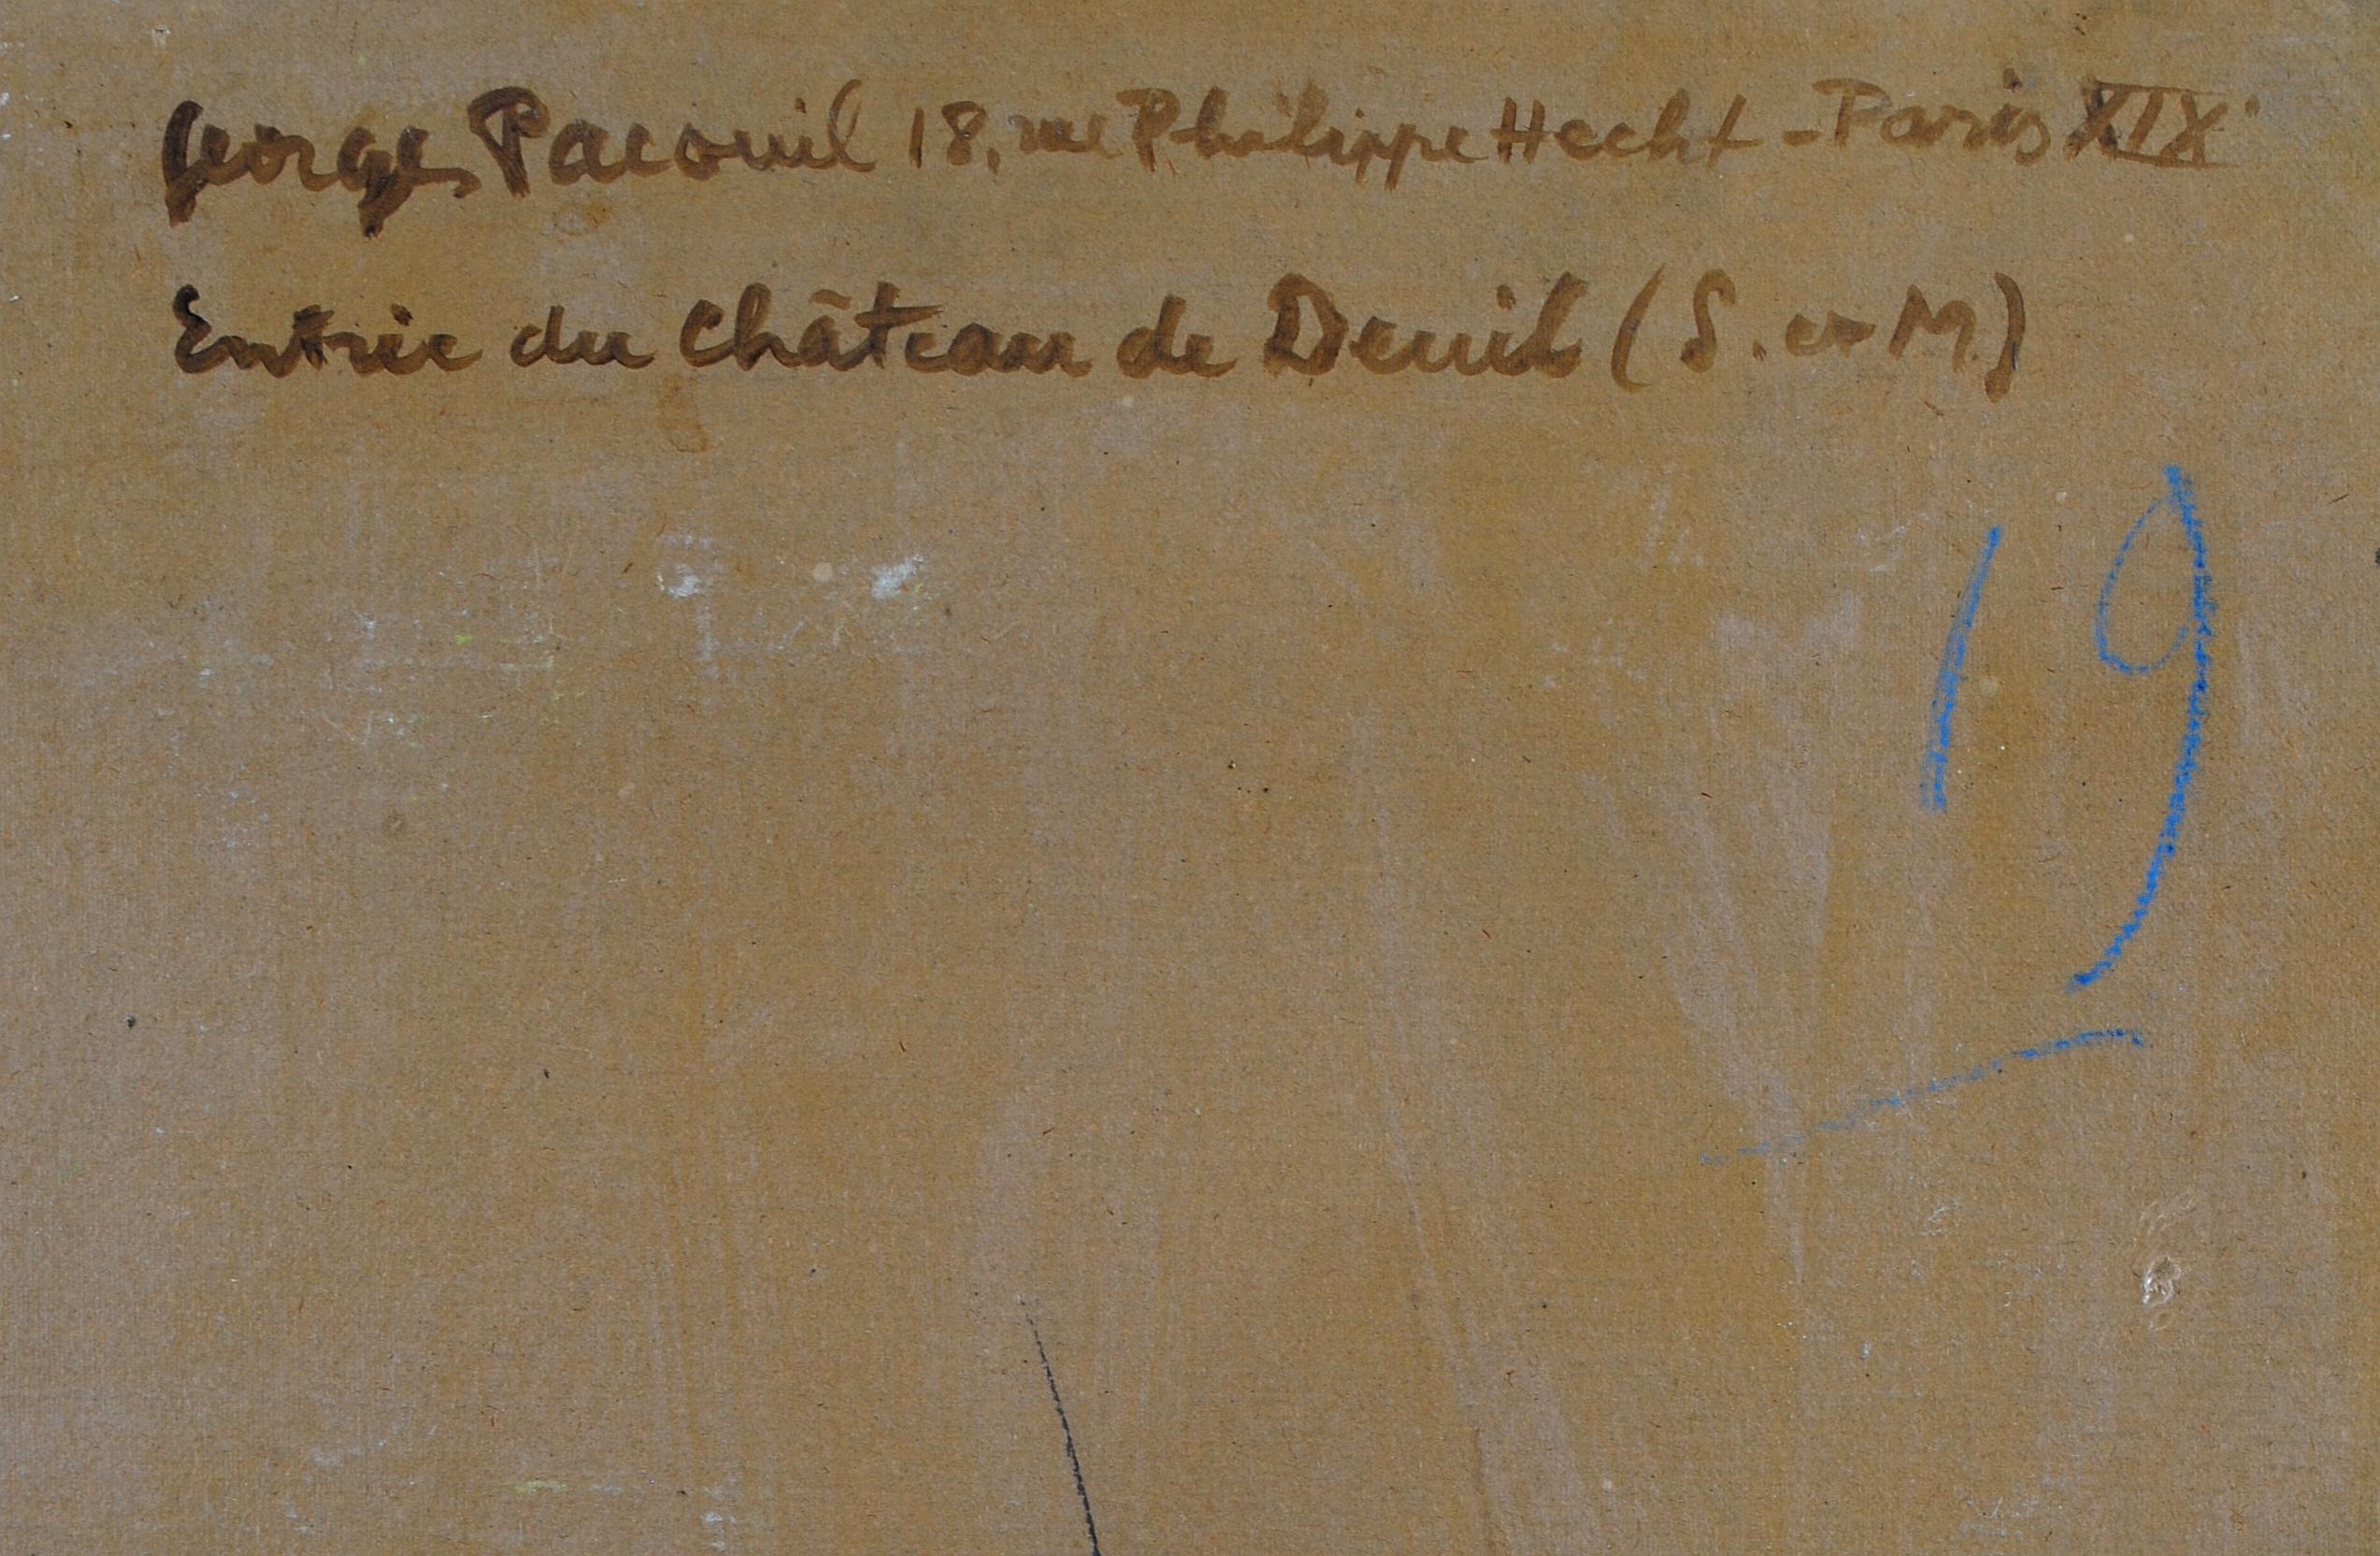 Georges Pacouil 18, rue Philippe Hecht - Paris XIX
Entrée du Château de Deuil (S. et M.)
19